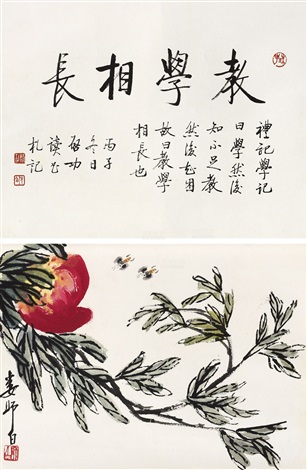 教學相長
禮記學記
曰學然後
知不足教
然後知困
故曰教學
相長也
丙子
冬日
啟功
讀書
札記
婁師白